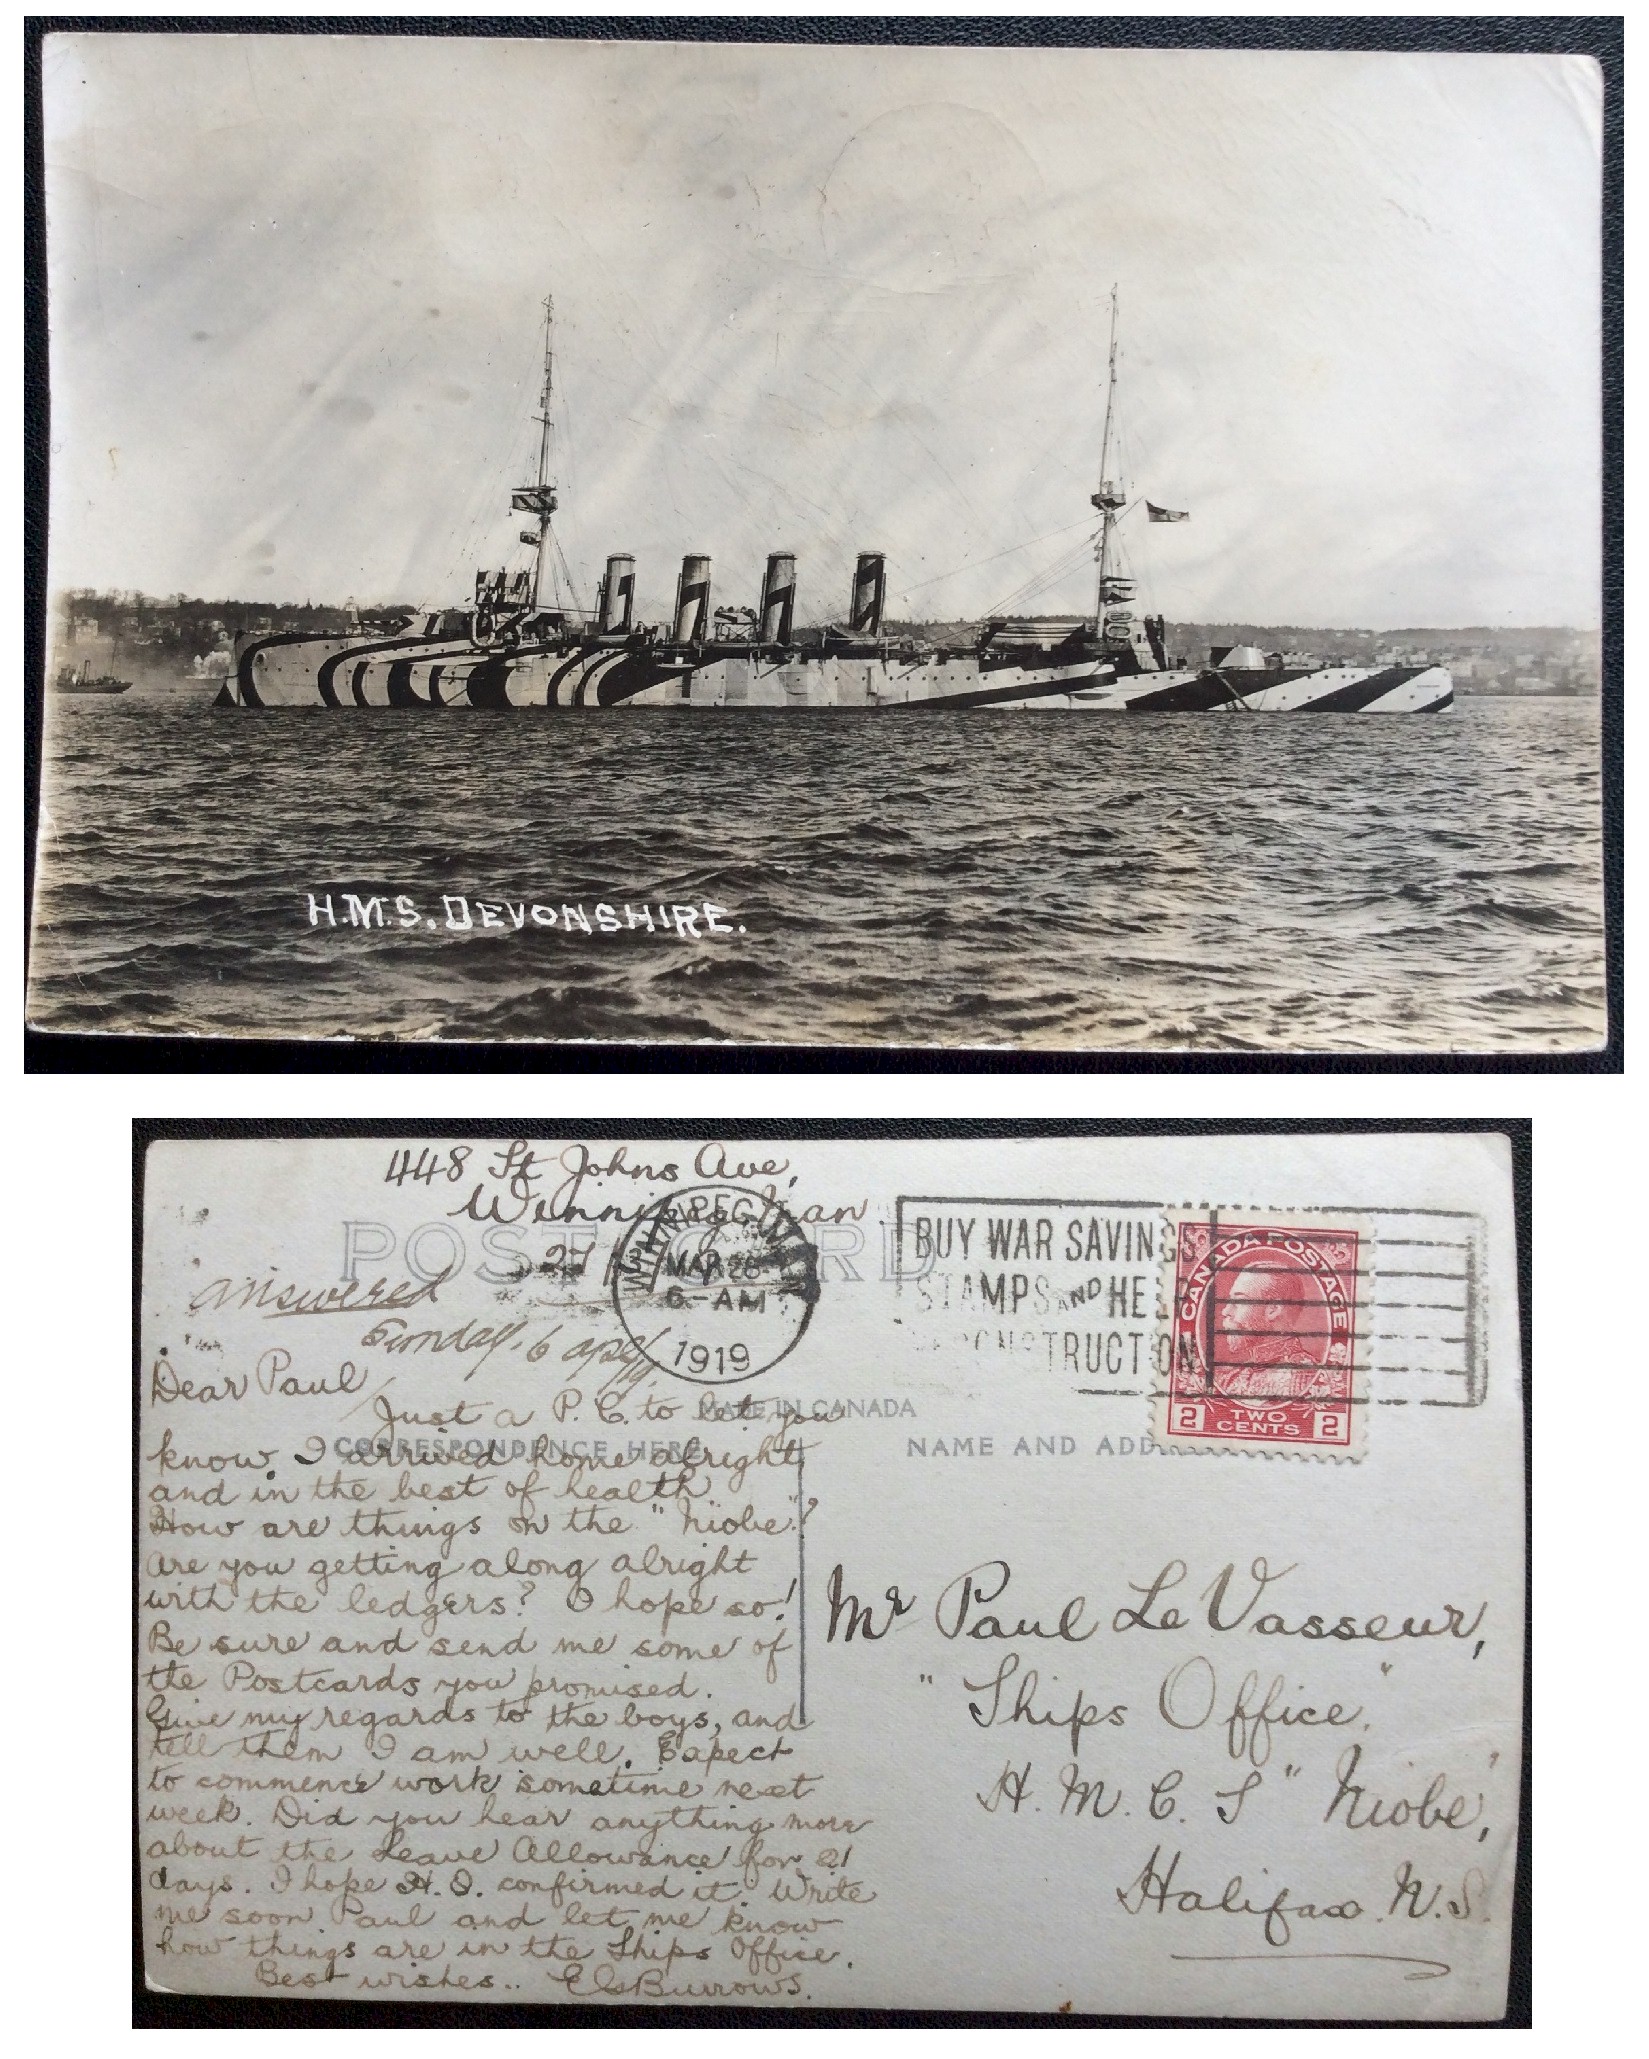 H.M.S. DEVONSHIRE.
448 St Johns Ave,
Winnipeg, Man
POST CARD
27
WINNIPEG
MAR 28
6-AM
1919
BUY WAR SAVINGS
STAMPS AND HELP
RECONSTRUCTION
CANADA POSTAGE
2 TWO CENTS 2
answered
Sunday, 6 apl/19.
MADE IN CANADA
CORRESPONDENCE HERE
NAME AND ADD
Dear Paul
Just a P. C. to let you
know I arrived home alright
and in the best of health
How are things on the "Niobe"?
Are you getting along alright
with the ledgers? I hope so!
Be sure and send me some of
the Postcards you promised.
Give my regards to the boys, and
tell them I am well. Expect
to commence work sometime next
week. Did you hear anything more
about the Leave Allowance for 21
days. I hope H.Q. confirmed it. Write
me soon Paul and let me know
how things are in the Ships Office.
Best wishes.. Burrows.
Mr Paul Le Vasseur,
"Ships Office"
H. M. C. S "Niobe",
Halifax. N.S.